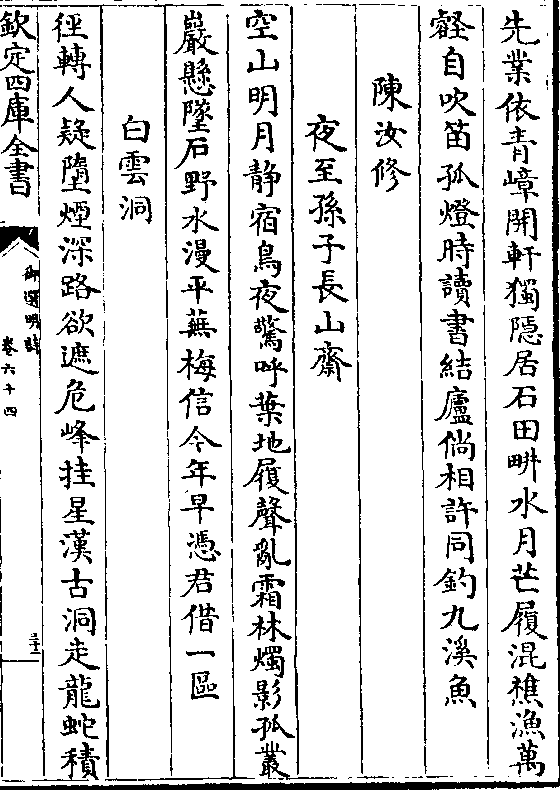 先業依青嶂開軒獨隱居石田畊水月芒履混樵漁萬
壑自吹笛孤燈時讀書結廬倘相許同釣九溪魚
陳汝修
夜至孫子長山齋
空山明月靜宿鳥夜驚呼葉地履聲亂霜林燭影孤叢
巖懸墜石野水漫平蕪梅信今年早憑君借一區
白雲洞
徑轉人疑墮煙深路欲遮危峰挂星漢古洞走龍蛇積
欽定四庫全書
御選明詩
卷六十四